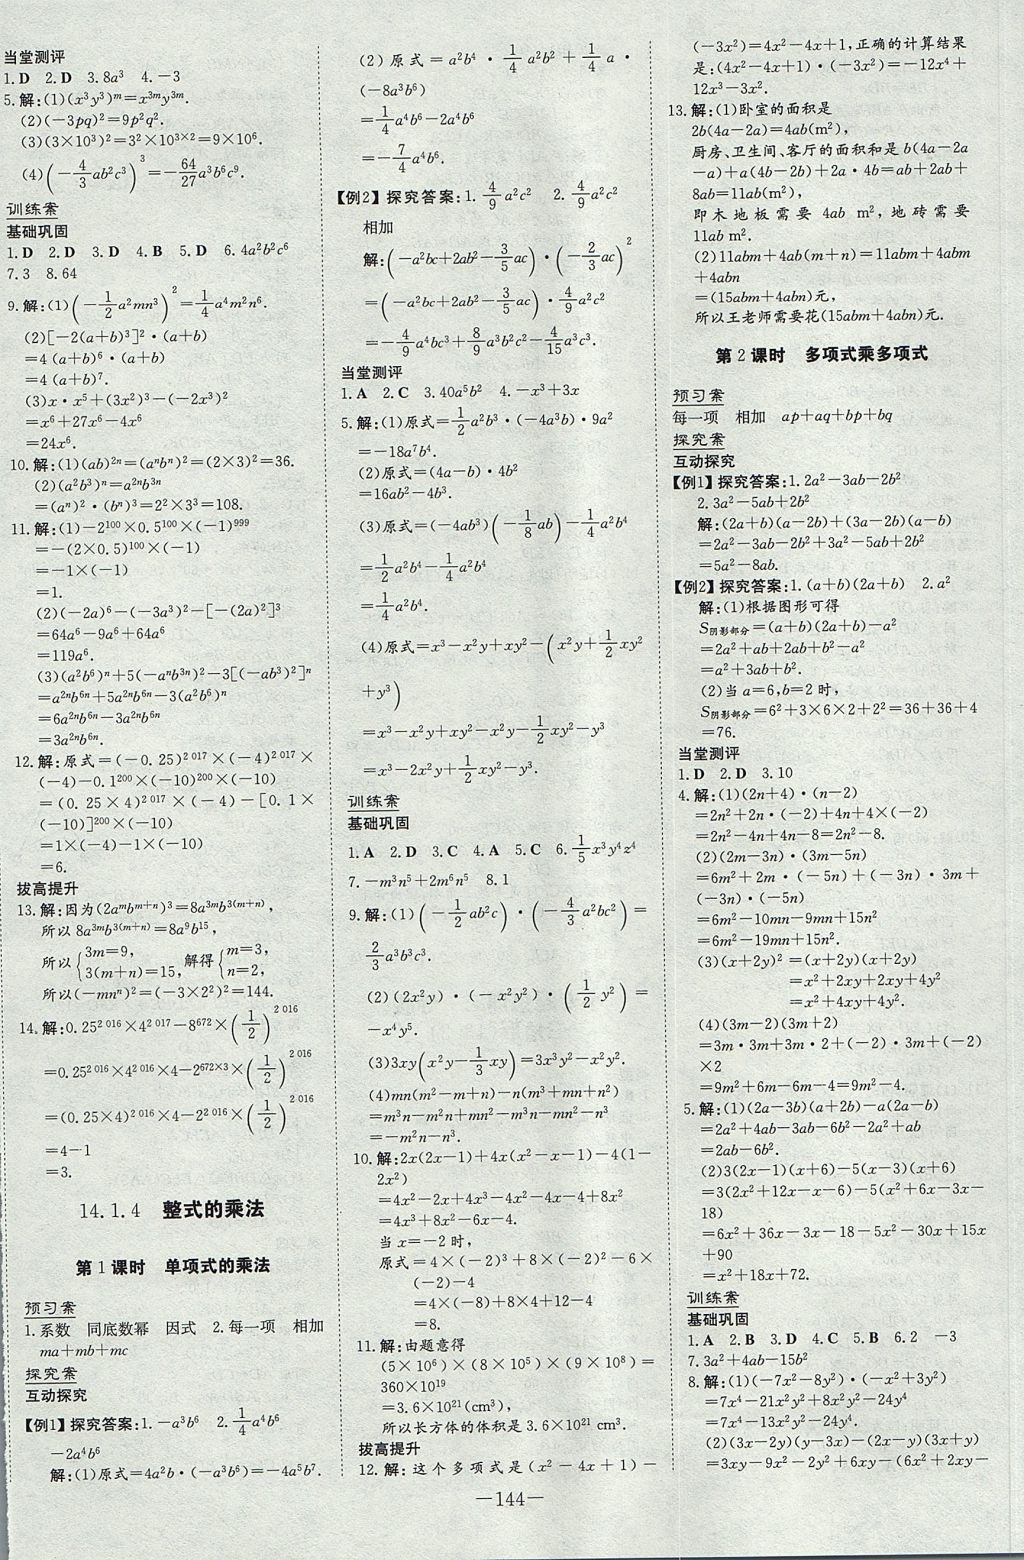 当堂测评
1.D 2.D 3.8a³ 4.-3
5.解:(1)(x³y³)ᵐ=x³ᵐy³ᵐ.
(2)(-3pq)²=9p²q².
(3)(3×10³)²=3²×10³ˣ²=9×10⁶.
(4)(-4/3ab²c³)³=-64/27a³b⁶c⁹.
训练案
基础巩固
1.D 2.D 3.D 4.B 5.D 6.4a²b²c⁶
7.3 8.64
9.解:(1)(-1/2a²mn³)²=1/4a⁴m²n⁶.
(2)[-2(a+b)³]²·(a+b)
=4(a+b)⁶·(a+b)
=4(a+b)⁷.
(3)x·x⁵+(3x²)³-(-2x³)²
=x⁶+27x⁶-4x⁶
=24x⁶.
10.解:(1)(ab)²ⁿ=(aⁿbⁿ)²=(2×3)²=36.
(2)(a²b³)ⁿ=a²ⁿb³ⁿ
=(aⁿ)²·(bⁿ)³=2²×3³=108.
11.解:(1)-2¹⁰⁰×0.5¹⁰⁰×(-1)⁹⁹⁹
=-(2×0.5)¹⁰⁰×(-1)
=-1×(-1)
=1.
(2)(-2a)⁶-(-3a³)²-[-(2a)²]³
=64a⁶-9a⁶+64a⁶
=119a⁶.
(3)(a²b⁶)ⁿ+5(-aⁿb³ⁿ)²-3[(-ab³)²]ⁿ
=a²ⁿb⁶ⁿ+5a²ⁿb⁶ⁿ-3(a²b⁶)ⁿ
=6a²ⁿb⁶ⁿ-3a²ⁿb⁶ⁿ
=3a²ⁿb⁶ⁿ.
12.解:原式=(-0.25)²⁰¹⁷×(-4)²⁰¹⁷×
(-4)-0.1²⁰⁰×(-10)²⁰⁰×(-10)
=(0.25×4)²⁰¹⁷×(-4)-[0.1×
(-10)]²⁰⁰×(-10)
=1×(-4)-1×(-10)
=6.
拔高提升
13.解:因为(2aᵐbᵐ⁺ⁿ)³=8a³ᵐb³⁽ᵐ⁺ⁿ⁾,
所以8a³ᵐb³⁽ᵐ⁺ⁿ⁾=8a⁹b¹⁵,
所以{3m=9, 3(m+n)=15, 解得{m=3, n=2,
所以(-mnⁿ)²=(-3×2²)²=144.
14.解:0.25²⁰¹⁶×4²⁰¹⁷-8⁶⁷²×(1/2)²⁰¹⁶
=0.25²⁰¹⁶×4²⁰¹⁶×4-2⁶⁷²ˣ³×(1/2)²⁰¹⁶
=(0.25×4)²⁰¹⁶×4-2²⁰¹⁶×(1/2)²⁰¹⁶
=4-1
=3.
14.1.4 整式的乘法
第1课时 单项式的乘法
预习案
1.系数 同底数幂 因式 2.每一项 相加
ma+mb+mc
探究案
互动探究
【例1】探究答案:1.-a³b⁶ 2.1/4a⁴b⁶
-2a⁴b⁶
解:(1)原式=4a²b·(-a³b⁶)=-4a⁵b⁷.
(2)原式=a²b⁴·1/4a²b²+1/4a·
(-8a³b⁶)
=1/4a⁴b⁶-2a⁴b⁶
=-7/4a⁴b⁶.
【例2】探究答案:1.4/9a²c² 2.4/9a²c²
相加
解:(-a²bc+2ab²-3/5ac)·(-2/3ac)²
=(-a²bc+2ab²-3/5ac)·4/9a²c²
=-4/9a⁴bc³+8/9a³b²c²-4/15a³c³.
当堂测评
1.A 2.C 3.40a⁵b² 4.-x³+3x
5.解:(1)原式=1/2a²b³·(-4a³b)·9a²
=-18a⁷b⁴.
(2)原式=(4a-b)·4b²
=16ab²-4b³.
(3)原式=(-4ab³)(-1/8ab)-1/4a²b⁴
=1/2a²b⁴-1/4a²b⁴
=1/4a²b⁴.
(4)原式=x³-x²y+xy²-(x²y+1/2xy²
+y³)
=x³-x²y+xy²-x²y-1/2xy²-y³
=x³-2x²y+1/2xy²-y³.
训练案
基础巩固
1.A 2.D 3.C 4.A 5.C 6.1/5x³y⁴z⁴
7.-m³n⁵+2m⁶n⁵ 8.1
9.解:(1)(-1/2ab²c)·(-4/3a²bc²)=
2/3a³b³c³.
(2)(2x²y)·(-x²y²)·(1/2y²)=
-x⁴y⁵.
(3)3xy(x²y-1/3xy)=3x³y²-x²y².
(4)mn(m²-m+n)-n(m³+mn+n²)
=m³n-m²n+mn²-m³n-mn²-n³
=-m²n-n³.
10.解:2x(2x-1)+4x(x²-1)-4(1-
2x²)
=4x²-2x+4x³-4x-4+8x²
=4x³+8x²-6x-4.
当x=-2时,
原式=4×(-2)³+8×(-2)²-6×
(-2)-4
=4×(-8)+8×4+12-4
=8.
11.解:由题意得
(5×10⁶)×(8×10⁵)×(9×10⁸)=
360×10¹⁹
=3.6×10²¹(cm³),
所以长方体的体积是3.6×10²¹ cm³.
拔高提升
12.解:这个多项式是(x²-4x+1)-
(-3x²)=4x²-4x+1,正确的计算结果
是:(4x²-4x+1)·(-3x²)=-12x⁴+
12x³-3x².
13.解:(1)卧室的面积是
2b(4a-2a)=4ab(m²),
厨房、卫生间、客厅的面积和是b(4a-2a
-a)+a(4b-2b)+2a·4b=ab+2ab+
8ab=11ab(m²),
即木地板需要4ab m²,地砖需要
11ab m².
(2)11abm+4ab(m+n)=11abm+4abm
+4abn
=(15abm+4abn)元,
所以王老师需要花(15abm+4abn)元.
第2课时 多项式乘多项式
预习案
每一项 相加 ap+aq+bp+bq
探究案
互动探究
【例1】探究答案:1.2a²-3ab-2b²
2.3a²-5ab+2b²
解:(2a+b)(a-2b)+(3a-2b)(a-b)
=2a²-3ab-2b²+3a²-5ab+2b²
=5a²-8ab.
【例2】探究答案:1.(a+b)(2a+b) 2.a²
解:(1)根据图形可得
S阴影部分=(a+b)(2a+b)-a²
=2a²+ab+2ab+b²-a²
=a²+3ab+b².
(2)当a=6,b=2时,
S阴影部分=6²+3×6×2+2²=36+36+4
=76.
当堂测评
1.D 2.D 3.10
4.解:(1)(2n+4)·(n-2)
=2n²+2n·(-2)+4n+4×(-2)
=2n²-4n+4n-8=2n²-8.
(2)(2m-3n)·(3m-5n)
=6m²+2m·(-5n)+(-3n)·3m+
(-3n)·(-5n)
=6m²-10mn-9mn+15n²
=6m²-19mn+15n².
(3)(x+2y)²=(x+2y)(x+2y)
=x²+2xy+2xy+4y²
=x²+4xy+4y².
(4)(3m-2)(3m+2)
=3m·3m+3m·2+(-2)·3m+(-2)
×2
=9m²+6m-6m-4=9m²-4.
5.解:(1)(2a-3b)(a+2b)-a(2a-b)
=2a²+4ab-3ab-6b²-2a²+ab
=2ab-6b².
(2)3(2x-1)(x+6)-5(x-3)(x+6)
=3(2x²+12x-x-6)-5(x²+6x-3x-
18)
=6x²+36x-3x-18-5x²-30x+15x
+90
=x²+18x+72.
训练案
基础巩固
1.A 2.B 3.D 4.C 5.B 6.2 -3
7.3a²+4ab-15b²
8.解:(1)(-7x²-8y²)·(-x²+3y²)
=7x⁴-21x²y²+8x²y²-24y⁴
=7x⁴-13x²y²-24y⁴.
(2)(3x-2y)(y-3x)-(2x-y)(3x+y)
=3xy-9x²-2y²+6xy-(6x²+2xy-
—144—